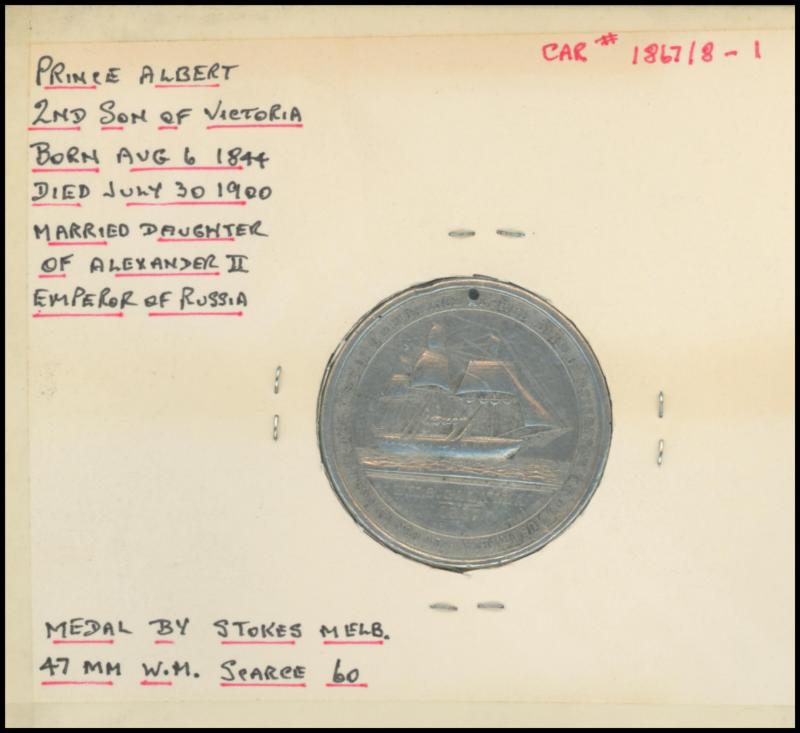 CAR # 1867/8 - 1
PRINCE ALBERT
2ND SON OF VICTORIA
BORN AUG 6 1844
DIED JULY 30 1900
MARRIED DAUGHTER
OF ALEXANDER II
EMPEROR OF RUSSIA
MEDAL BY STOKES MELB.
47 MM W.M. SCARCE 60